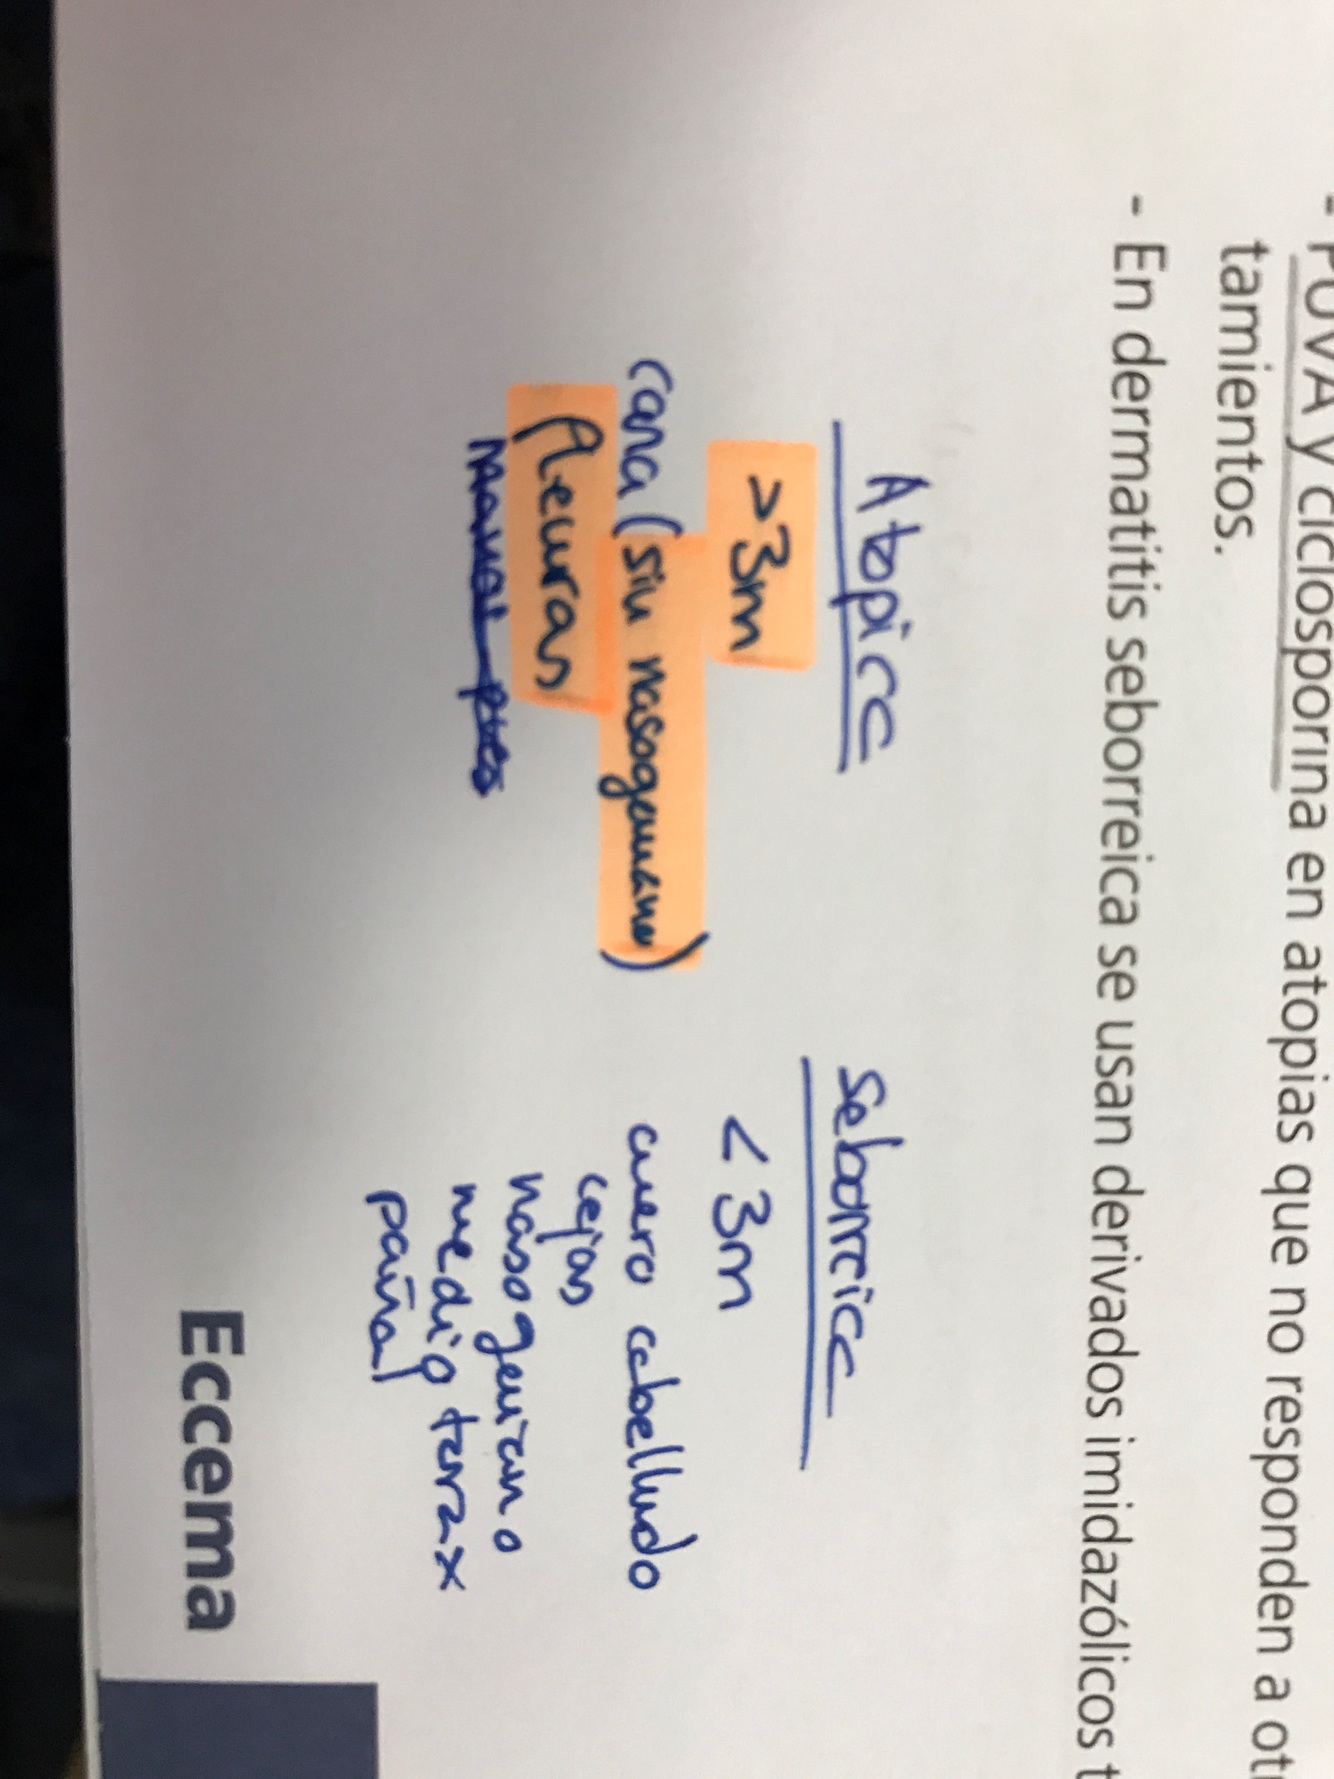 - PUVA y ciclosporina en atopias que no responden a otr
tamientos.
- En dermatitis seborreica se usan derivados imidazólicos t
Atopicc
>3m
cara (sin nasogeniano)
Flexuras
Seborreica
<3m
cuero cabelludo
cejas
nasogeniano
medio torax
pañal
Eccema